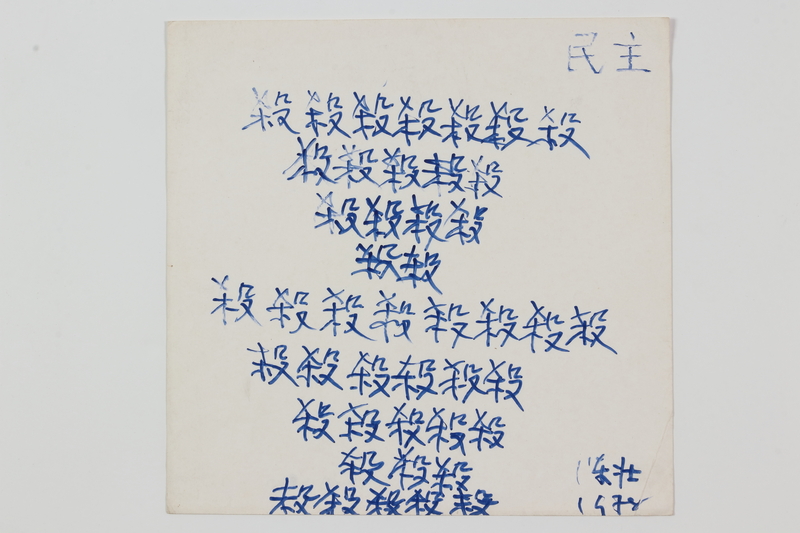 民主
殺殺殺殺殺殺殺
殺殺殺殺殺
殺殺殺殺
殺殺
殺殺殺殺殺殺殺殺
殺殺殺殺殺殺
殺殺殺殺殺
殺殺殺
殺殺殺殺殺